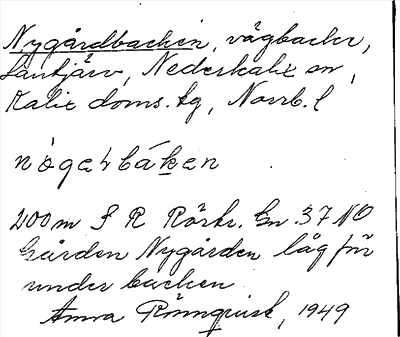 Nygårdbacken, vägbacke,
Lantjärv, Nederkalix sn,
Kalix doms. tg, Norrb. l
nògaḷbákan
200 m S R Rörbr. Gn 37 NO
Gården Nygården låg för
under backen
Anna Rönnquist, 1949